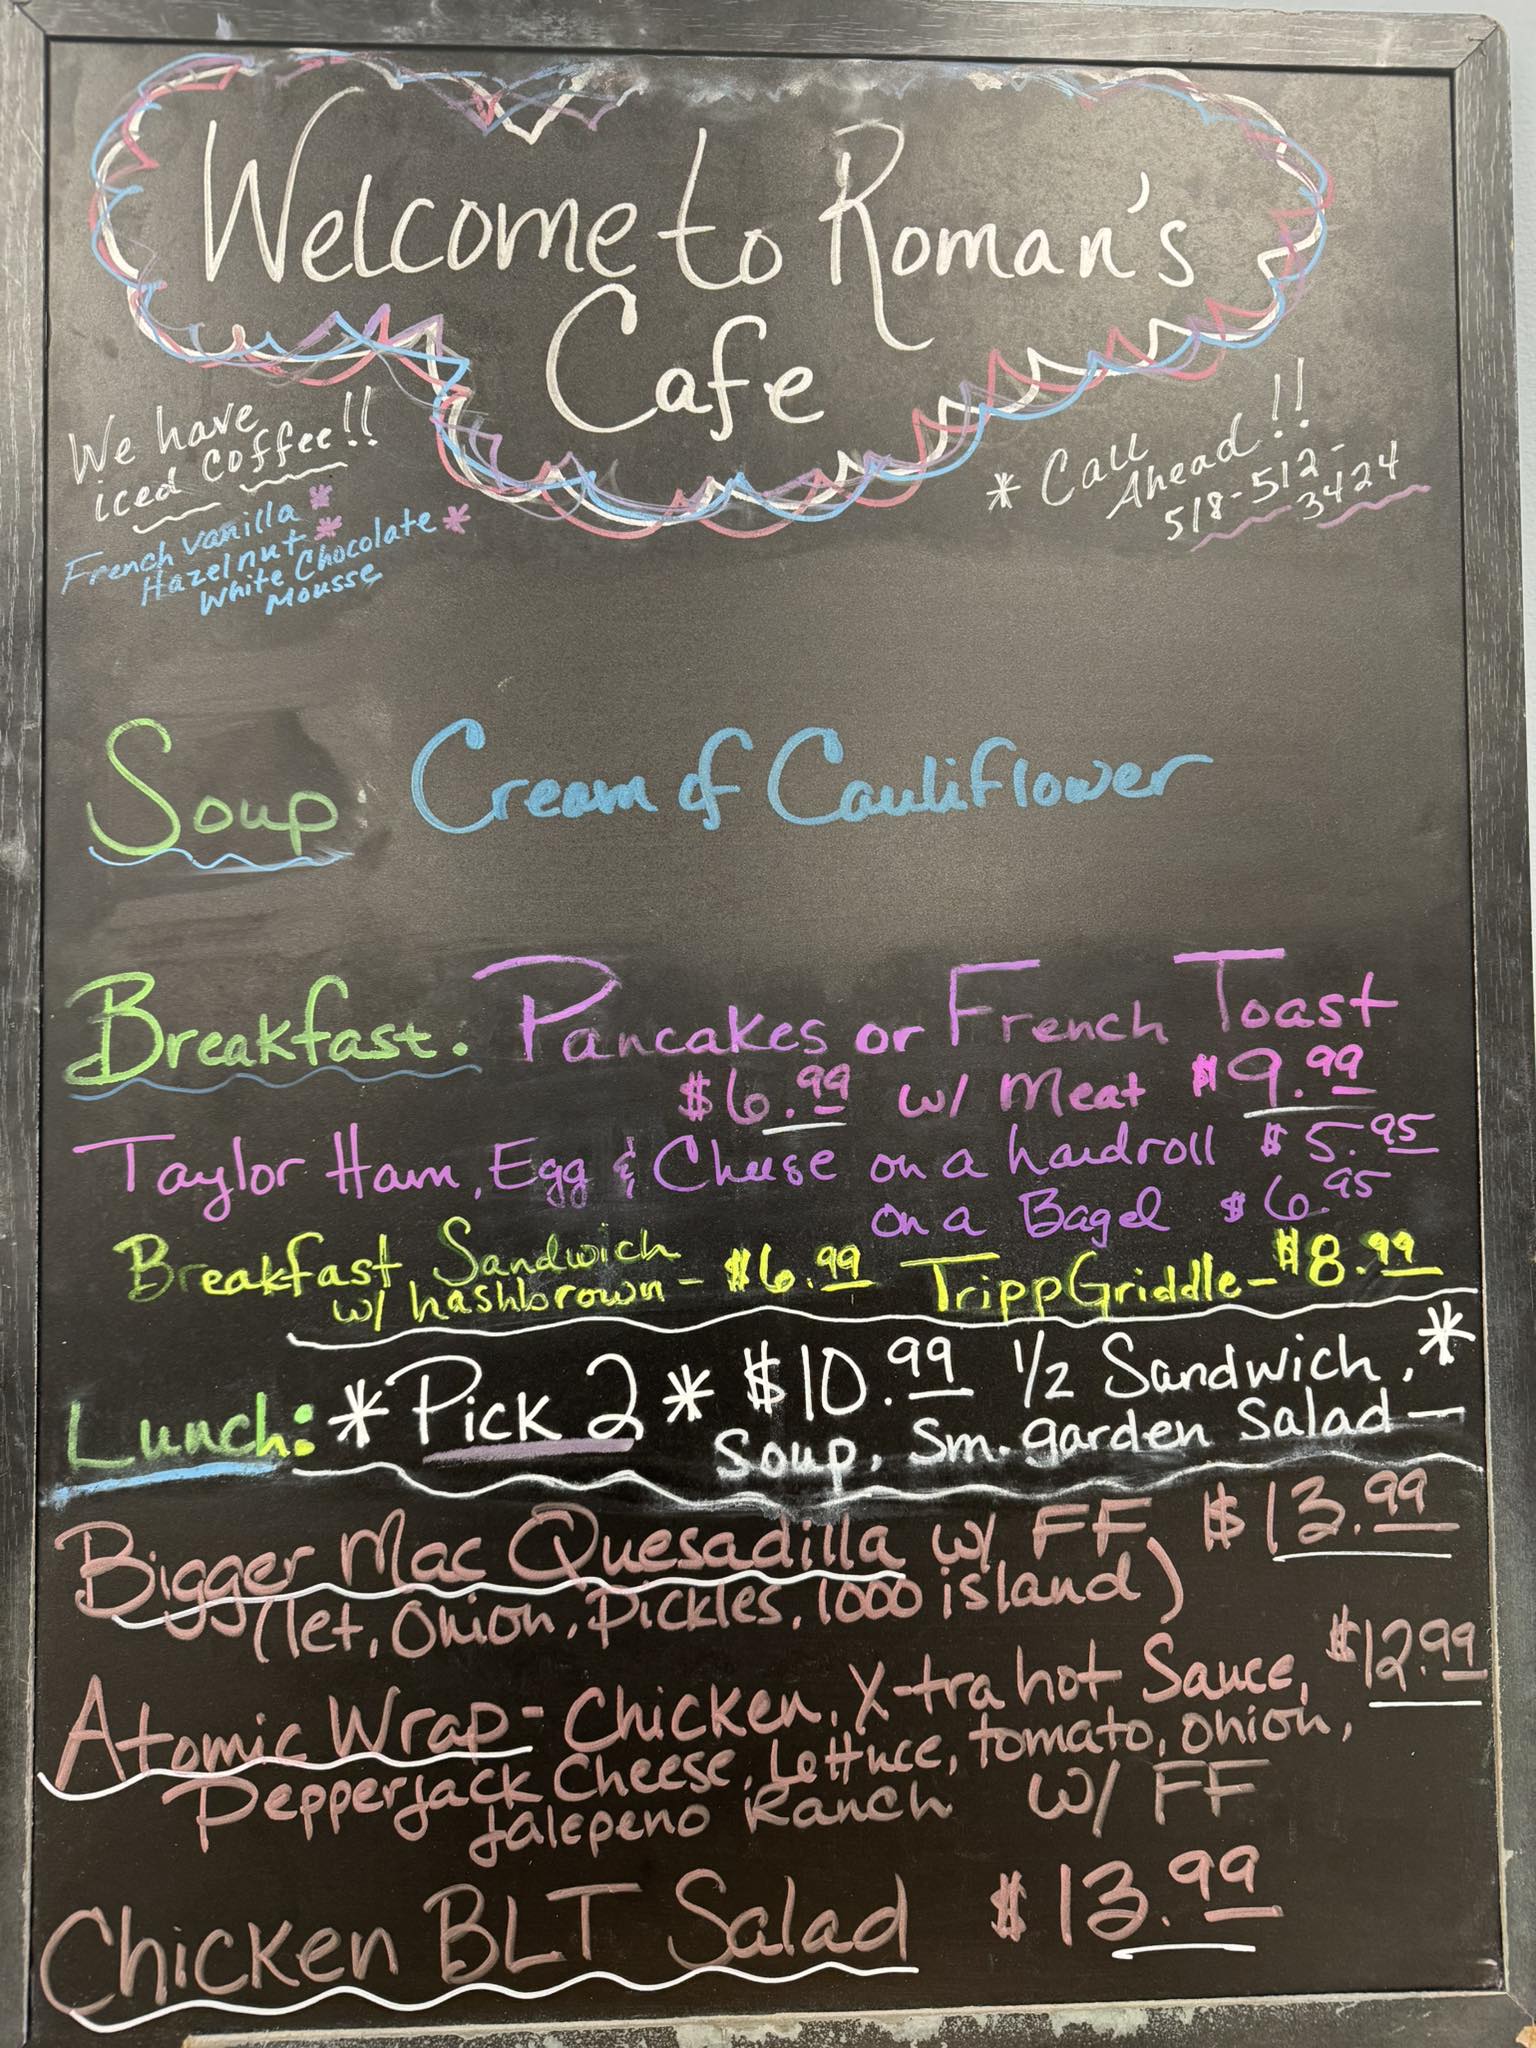 Welcome to Roman's
Cafe
We have
iced coffee!!
French Vanilla *
Hazelnut *
White Chocolate *
Mousse
* Call
Ahead!!
518-512-
3424
Soup: Cream of Cauliflower
Breakfast: Pancakes or French Toast
$6.99 w/ Meat $9.99
Taylor Ham, Egg & Cheese on a hardroll $5.95
on a Bagel $6.95
Breakfast Sandwich
w/ hashbrown - $6.99 TrippGriddle - $8.99
Lunch: * Pick 2 * $10.99 1/2 Sandwich, *
Soup, Sm. garden Salad —
Bigger Mac Quesadilla w/ FF $13.99
(let, Onion, Pickles, 1000 island)
Atomic Wrap - Chicken, X-tra hot Sauce, $12.99
Pepperjack Cheese, Lettuce, tomato, onion,
Jalepeno Ranch w/ FF
Chicken BLT Salad $13.99